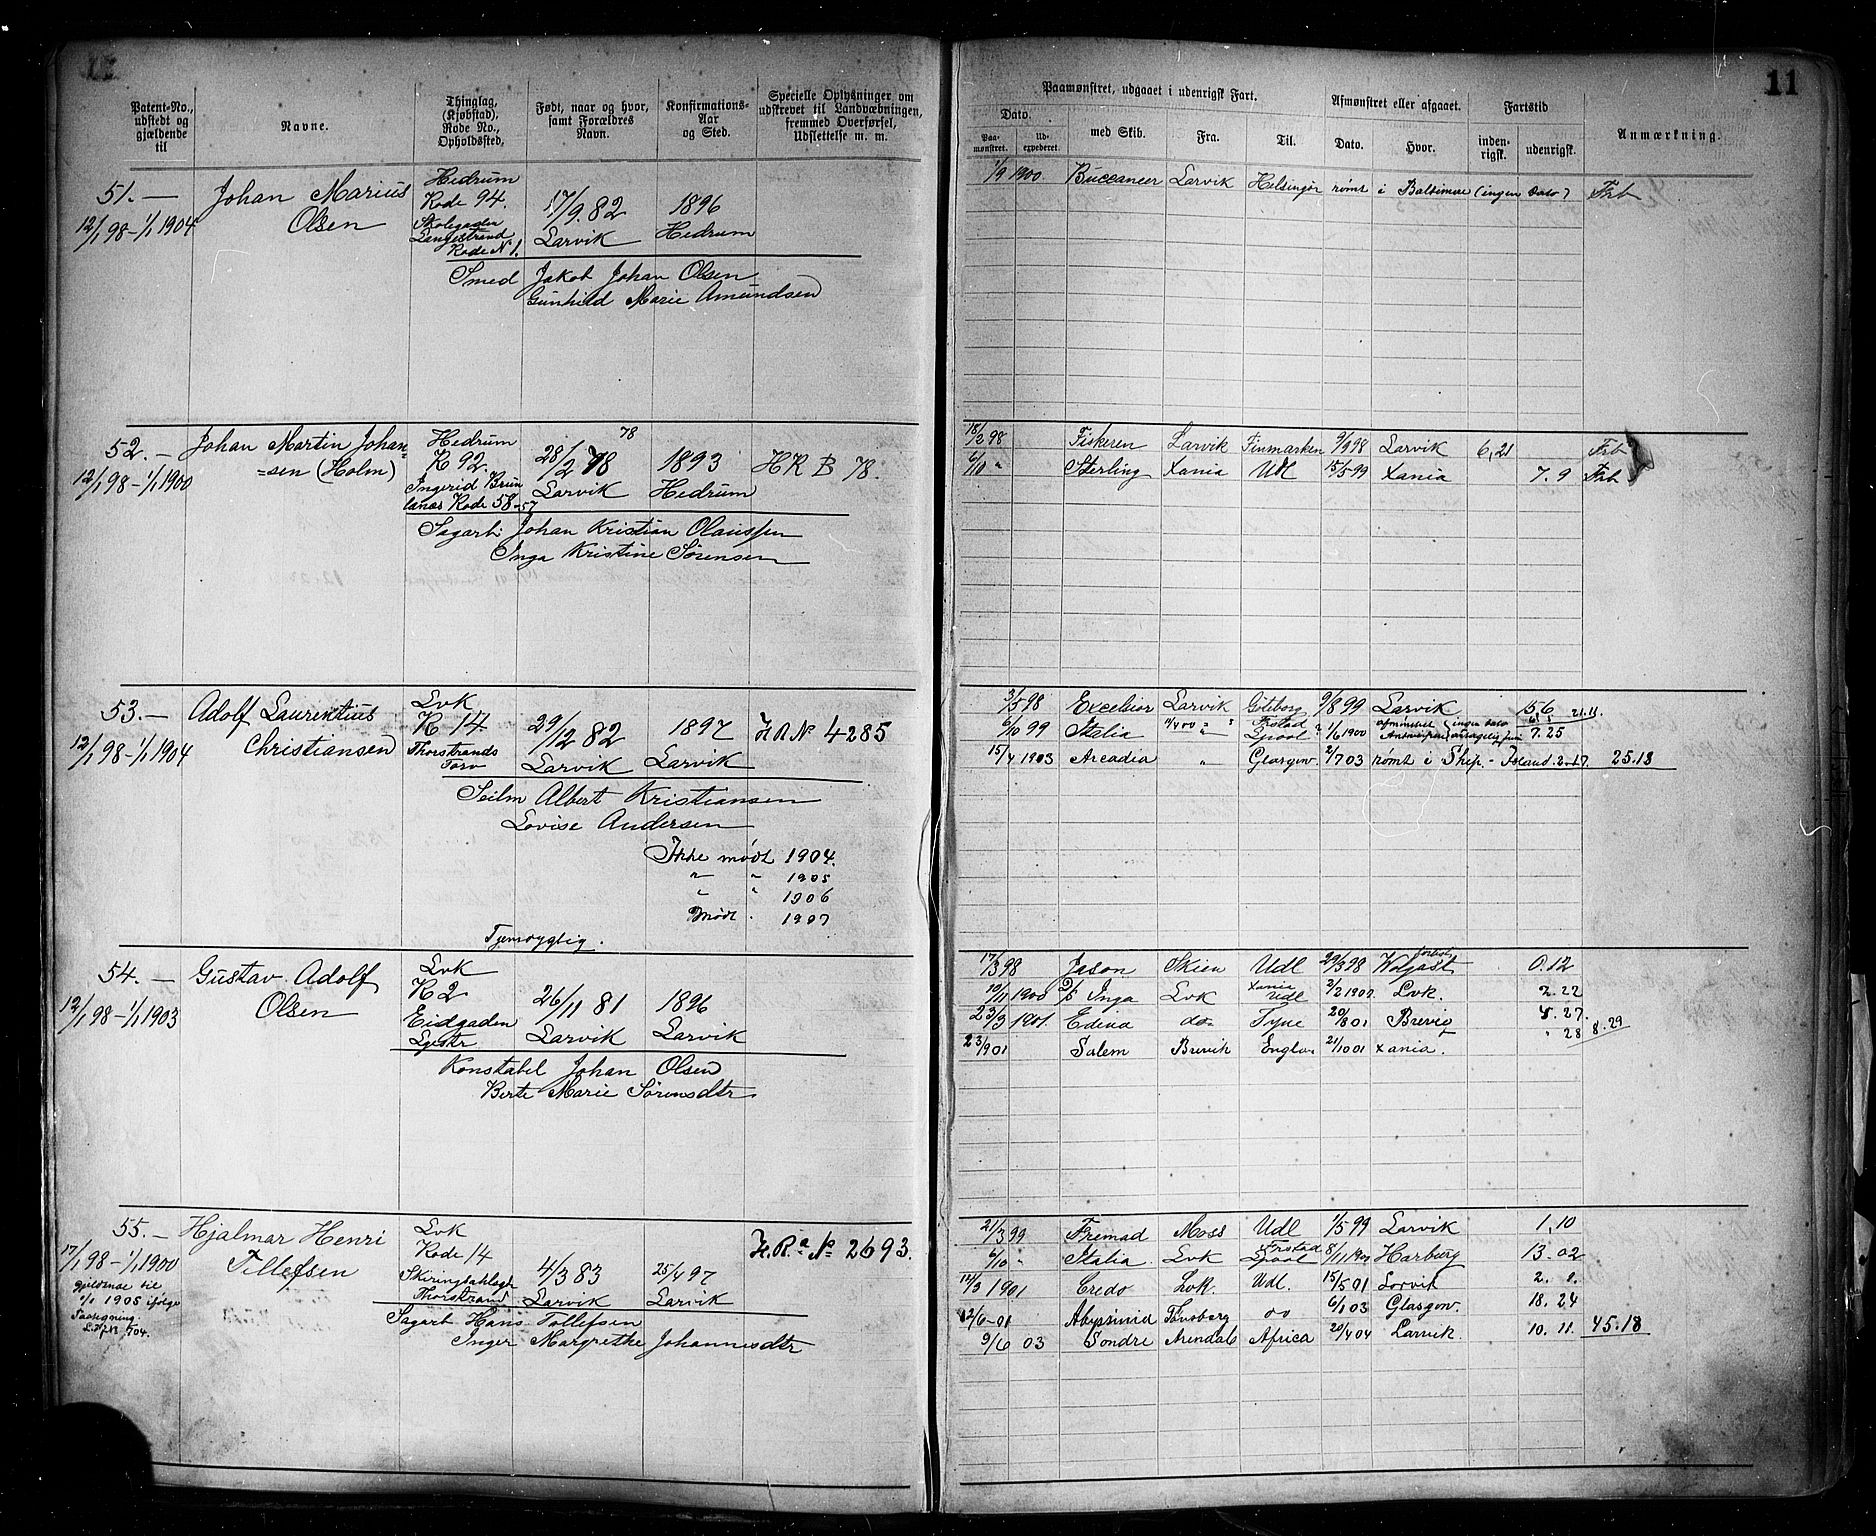 11
Patent-No., udstedt og gjældende til
Navne.
Thinglag, (Kjøbstad), Rode No., Opholdssted,
Født, naar og hvor, samt Forældres Navn.
Konfirmations-Aar og Sted.
Specielle Oplysninger om udskrevet til Landværnningen, fremmed Overførsel, Udslettelse m. m.
Paamønstret, udgaaet i udenrigsk Fart.
Afmønstret eller afgaaet.
Fartstid
Anmærkning.
Dato.
Paa-mønstret.
Ud-expederet.
med Skib.
Fra.
Til.
Dato.
Hvor.
inden-rigsk.
udenrigsk.
51. — Johan Marius Olsen
12/1 98 – 1/1 1904
Hedrum
Rode 94.
Skolegaden
Langestrand
Rode N 1.
17/9. 82
Larvik
1896
Hedrum
Smed Jakob Johan Olsen
Gunhild Marie Amundsen
1/9 1900 Buccaneer Larvik Helsingør rømt i Baltimore (ingen dato) Frb
52. — Johan Martin Johan=
=sen (Holm)
12/1 98 – 1/1 1900
Hedrum
R 92.
Ingerid Brun
lanæs Rode 58-57
78
28/2 78
Larvik
1893
Hedrum
HR B 78.
Sagarb. Johan Kristian Olaussen
Inga Kristine Sørensen
18/2 98 Fiskeren Larvik Finmarken 9/9 98 Larvik 6,21 Frb
6/10 " Sterling Xania Udl 15/5 99 Xania 7. 9 Frb
53. — Adolf Laurentius
Christiansen
12/1 98 – 1/1 1904
Lvk
R 14.
Thorstrands
Torv
29/12 82
Larvik
1897
Larvik
H R No 4285
Seilm Albert Kristiansen
Lovise Andersen
Ikke mødt 1904.
" " 1905
" " 1906
Mødt . 1907
Tjenstygtig.
3/5 98 Excelsior Larvik Göteborg 9/8 99 Larvik 15 6 21.11.
6/10 99 Italia 11/4 00 " " Frstad Lpool 1/6 1900 afmønstret ingen dato Antwerpen 7.25
15/4 1903 Arcadia " Glasgow. 2/7 03 rømt i Ship-Island. 2.17. 25.18
54. — Gustav Adolf
Olsen
12/1 98 – 1/1 1903
Lvk
R 2
Eidgaden
Lgstr
26/11 81
Larvik
1896
Larvik
Konstabel Johan Olsen
Berte Marie Sørensdtr
17/3 98 Jason Skien Udl 29/3 98 Wolgast 0.12
10/11 1900 D/S Inga Lvk Xania Udl 2/2 1901. Lvk. 2.22
23/3 1901. Edina do Tyne 20/8 01 Brevig 4.27.
23/9 01 Salem Brevik Englan 21/10 01 Xania. " 28 8.29
55. — Hjalmar Henri
Tollefsen
17/1 98 – 1/1 1900
gjeldende til
1/1 1905 ifølge
Lvk
Rode 14
Skiringssahlsgt
Thorstrand
4/3 83
Larvik
25/4 97
Larvik
H.R.a No 2693.
Sagarb Hans Tollefsen
Inger Margrethe Johannesdtr
21/3 99 Fremad Moss Udl 1/5 99 Larvik 1.10
6/10 " Italia. Lvk Frstad Lpool 8/11 1900 Harburg 13.02
12/3 1901 Credo Lvk. Udl. 15/5 01 Larvik 2. 1.
12/6-01 Abyssinia Tønsberg do 6/1 03 Glasgow. 18. 24
9/6 03 Søndre Arendal Africa 20/4 04 Larvik. 10. 11. 45.18